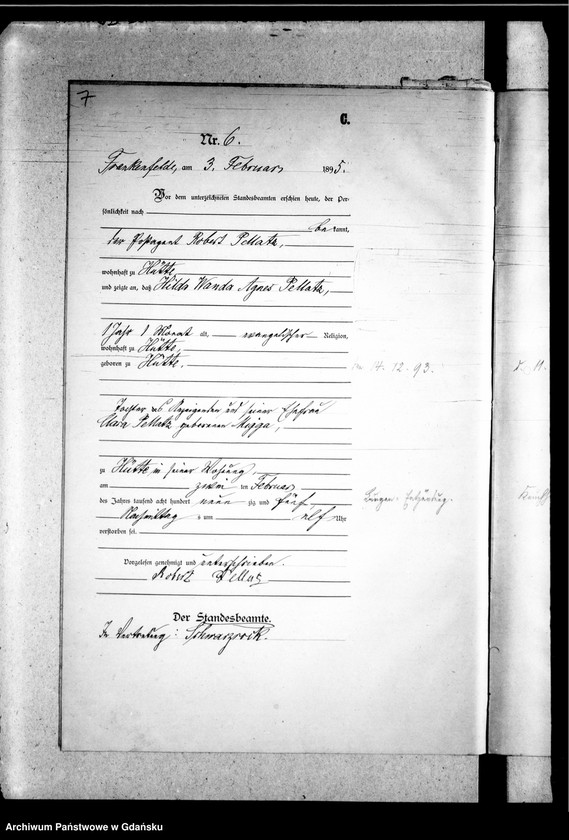 7
C.
Nr. 6.
Frankenfelde, am 3. Februar 1895.
Vor dem unterzeichneten Standesbeamten erschien heute, der Per-
sönlichkeit nach
be kannt,
der Postagent Robert Pellatz,
wohnhaft zu Hütte,
und zeigte an, daß Hilda Wanda Agnes Pellatz,
1 Jahr 1 Monat alt, evangelischer Religion,
wohnhaft zu Hütte,
geboren zu Hütte,
14. 12. 93.
Tochter des Anzeigenden und seiner Ehefrau
Clara Pellatz geborenen
zu Hütte in seiner Wohnung,
am zwei ten Februar
des Jahres tausend acht hundert neun zig und fünf
Nachmittag s um elf Uhr
verstorben sei.
Lungen Entzündung.
Vorgelesen genehmigt und unterschrieben.
Robert Pellatz
Der Standesbeamte.
In Vertretung: Schwarzrock.
Archiwum Państwowe w Gdańsku